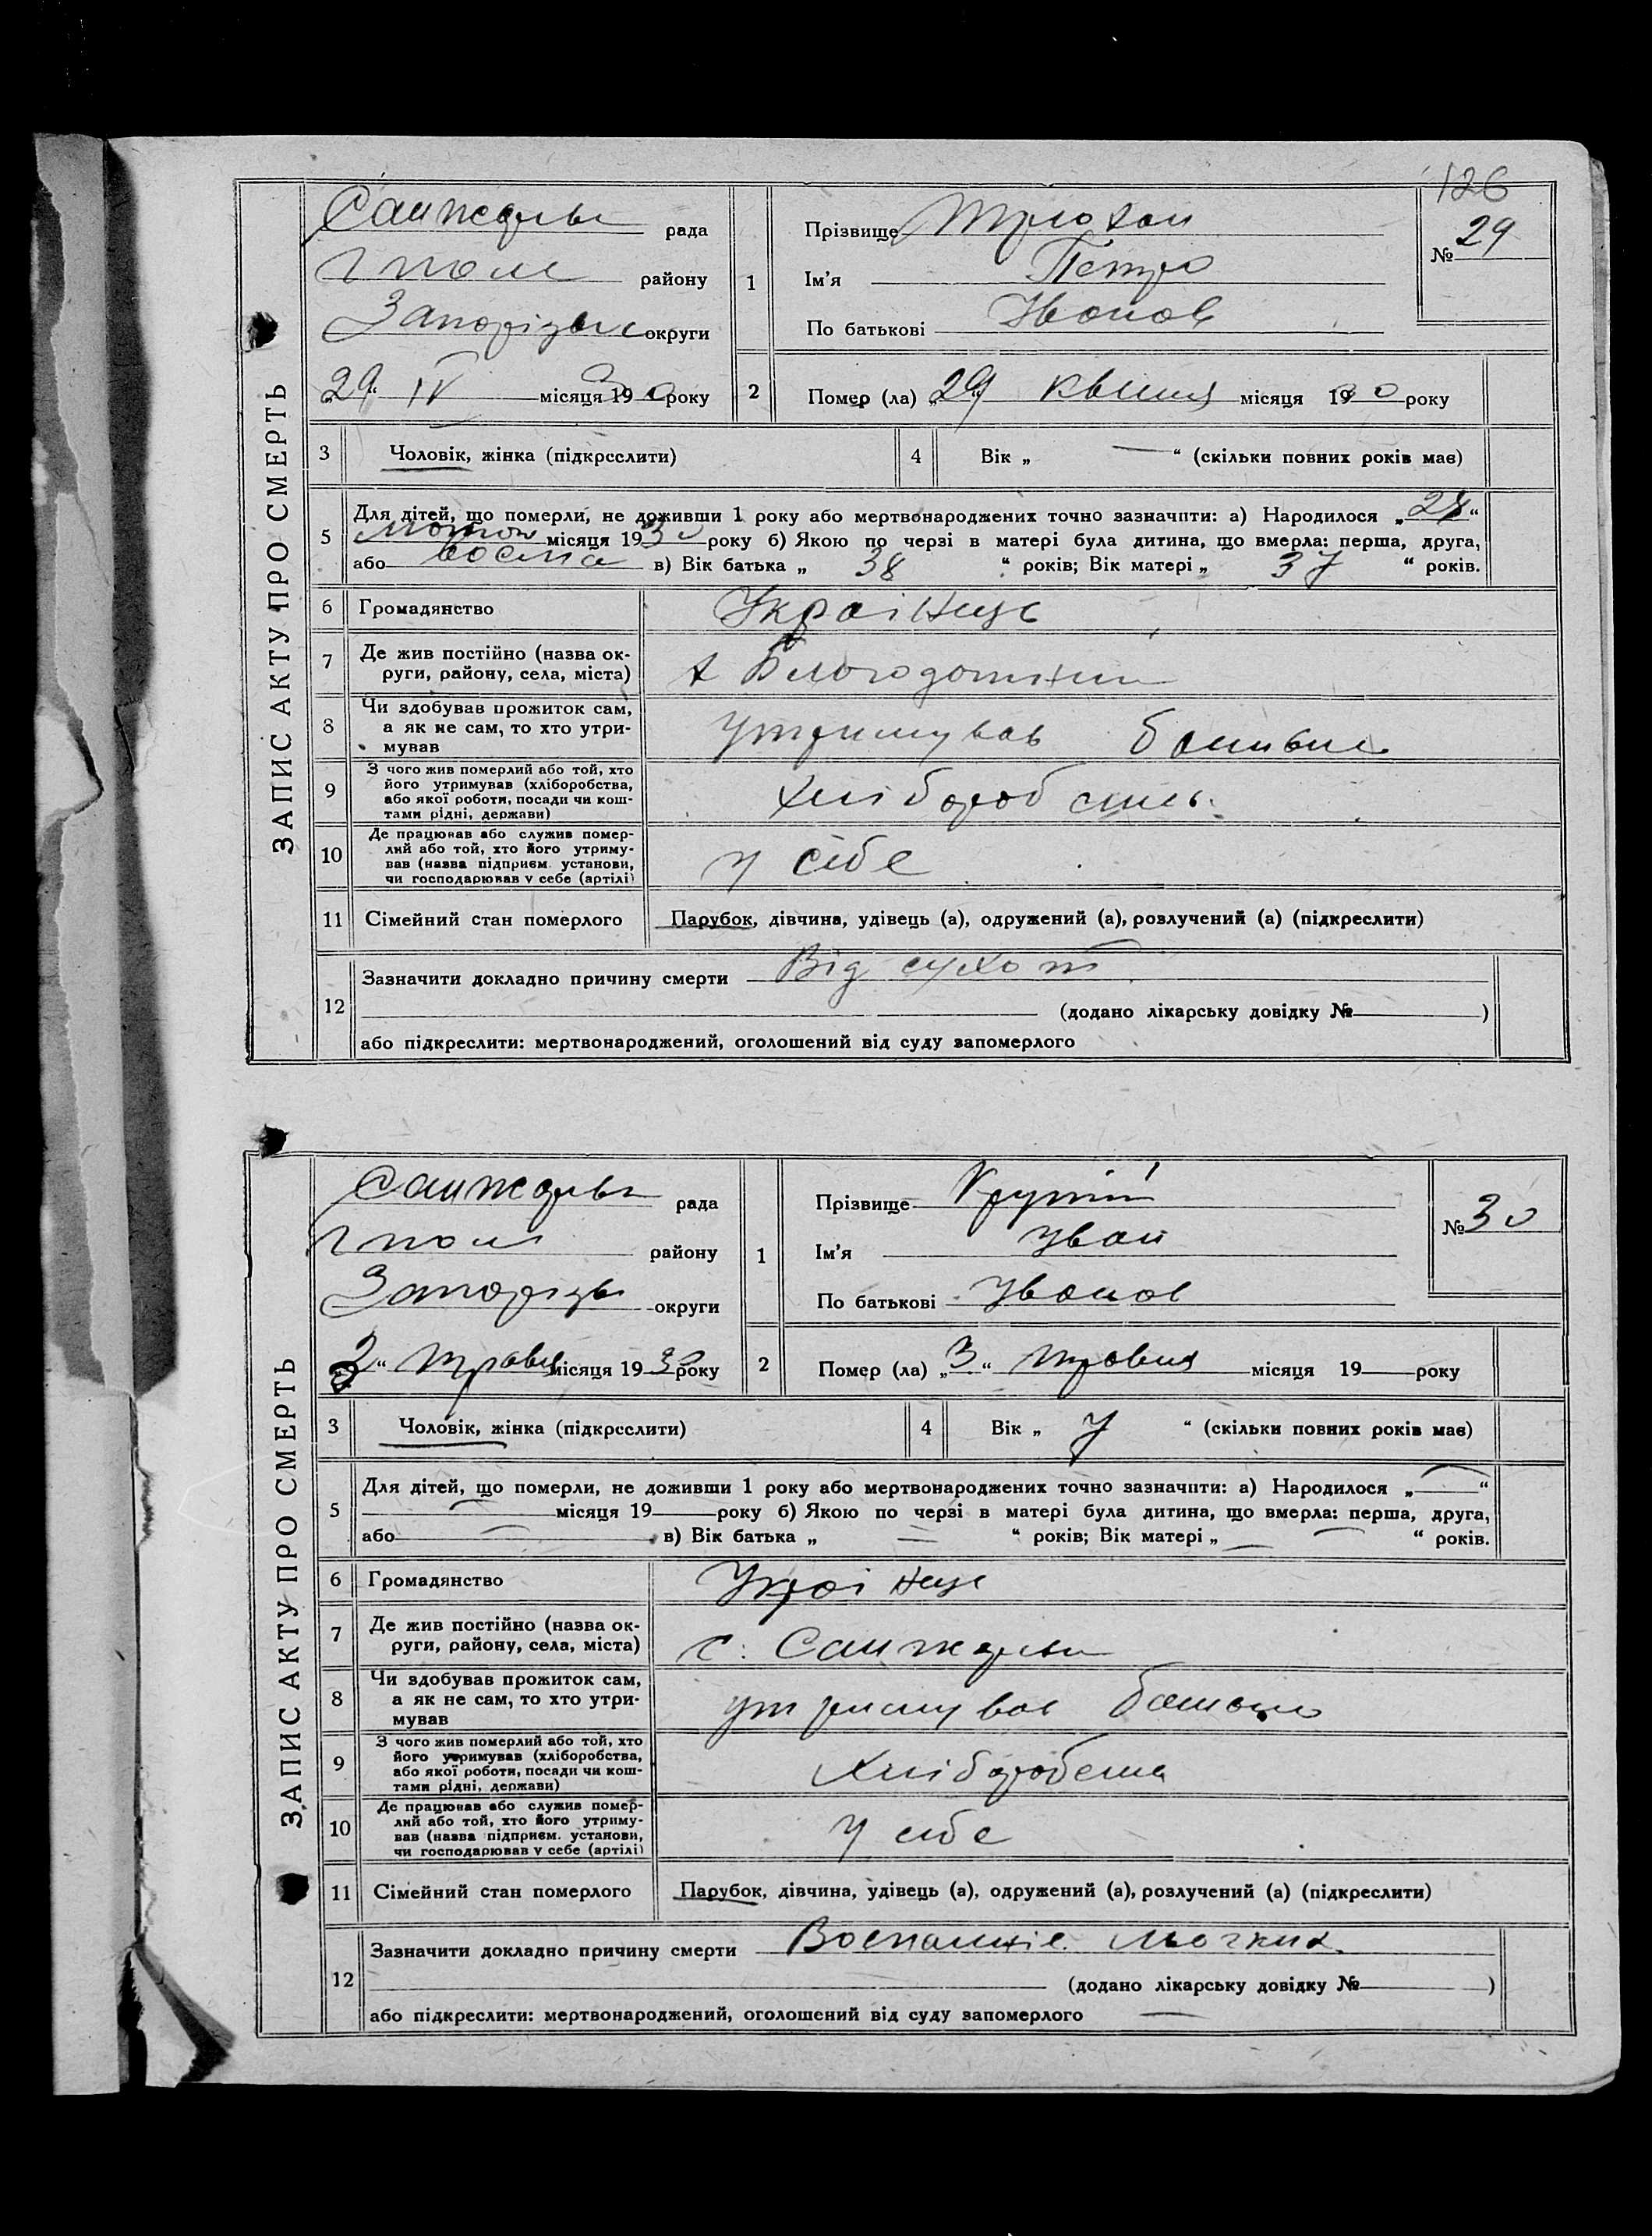 126
ЗАПИС АКТУ ПРО СМЕРТЬ
Санжарівс рада
Гполе району
Запорізьк округи
„29“ IV місяця 1930 року
1
Прізвище Трохан
Ім'я Петро
По батькові Іванов
№ 29
2 Помер (ла) „29“ квітня місяця 1930 року
3 Чоловік, жінка (підкреслити)
4 Вік „—“ (скільки повних років має)
5 Для дітей, що померли, не доживши 1 року або мертвонароджених точно зазначити: а) Народилося „28“
лютого місяця 1930 року б) Якою по черзі в матері була дитина, що вмерла: перша, друга,
або восьма в) Вік батька „38“ років; Вік матері „37“ років.
6 Громадянство Українець
7 Де жив постійно (назва ок-
руги, району, села, міста)
х
8 Чи здобував прожиток сам,
а як не сам, то хто утри-
мував
утримував батько
9 З чого жив померлий або той, хто
його утримував (хліборобства,
або якої роботи, посади чи кош-
тами рідні, держави)
Хліборобств.
10 Де працював або служив помер-
лий або той, хто його утриму-
вав (назва підприєм. установи,
чи господарював у себе (артілі)
у сібе
11 Сімейний стан померлого Парубок, дівчина, удівець (а), одружений (а), розлучений (а) (підкреслити)
12 Зазначити докладно причину смерти Від сухот
(додано лікарську довідку № )
або підкреслити: мертвонароджений, оголошений від суду запомерлого
ЗАПИС АКТУ ПРО СМЕРТЬ
Санжарівс рада
Гполе району
Запорізьк округи
„3“ травня місяця 1930 року
1
Прізвище Крутій
Ім'я Іван
По батькові Іванов
№ 30
2 Помер (ла) „3“ травня місяця 19 року
3 Чоловік, жінка (підкреслити)
4 Вік „7“ (скільки повних років має)
5 Для дітей, що померли, не доживши 1 року або мертвонароджених точно зазначити: а) Народилося „—“
— місяця 19 року б) Якою по черзі в матері була дитина, що вмерла: перша, друга,
або — в) Вік батька „—“ років; Вік матері „—“ років.
6 Громадянство Українець
7 Де жив постійно (назва ок-
руги, району, села, міста)
с. Санжарівк
8 Чи здобував прожиток сам,
а як не сам, то хто утри-
мував
утримував батько
9 З чого жив померлий або той, хто
його утримував (хліборобства,
або якої роботи, посади чи кош-
тами рідні, держави)
Хліборобства
10 Де працював або служив помер-
лий або той, хто його утриму-
вав (назва підприєм. установи,
чи господарював у себе (артілі)
у сібе
11 Сімейний стан померлого Парубок, дівчина, удівець (а), одружений (а), розлучений (а) (підкреслити)
12 Зазначити докладно причину смерти Воспаління льогких.
(додано лікарську довідку № )
або підкреслити: мертвонароджений, оголошений від суду запомерлого —